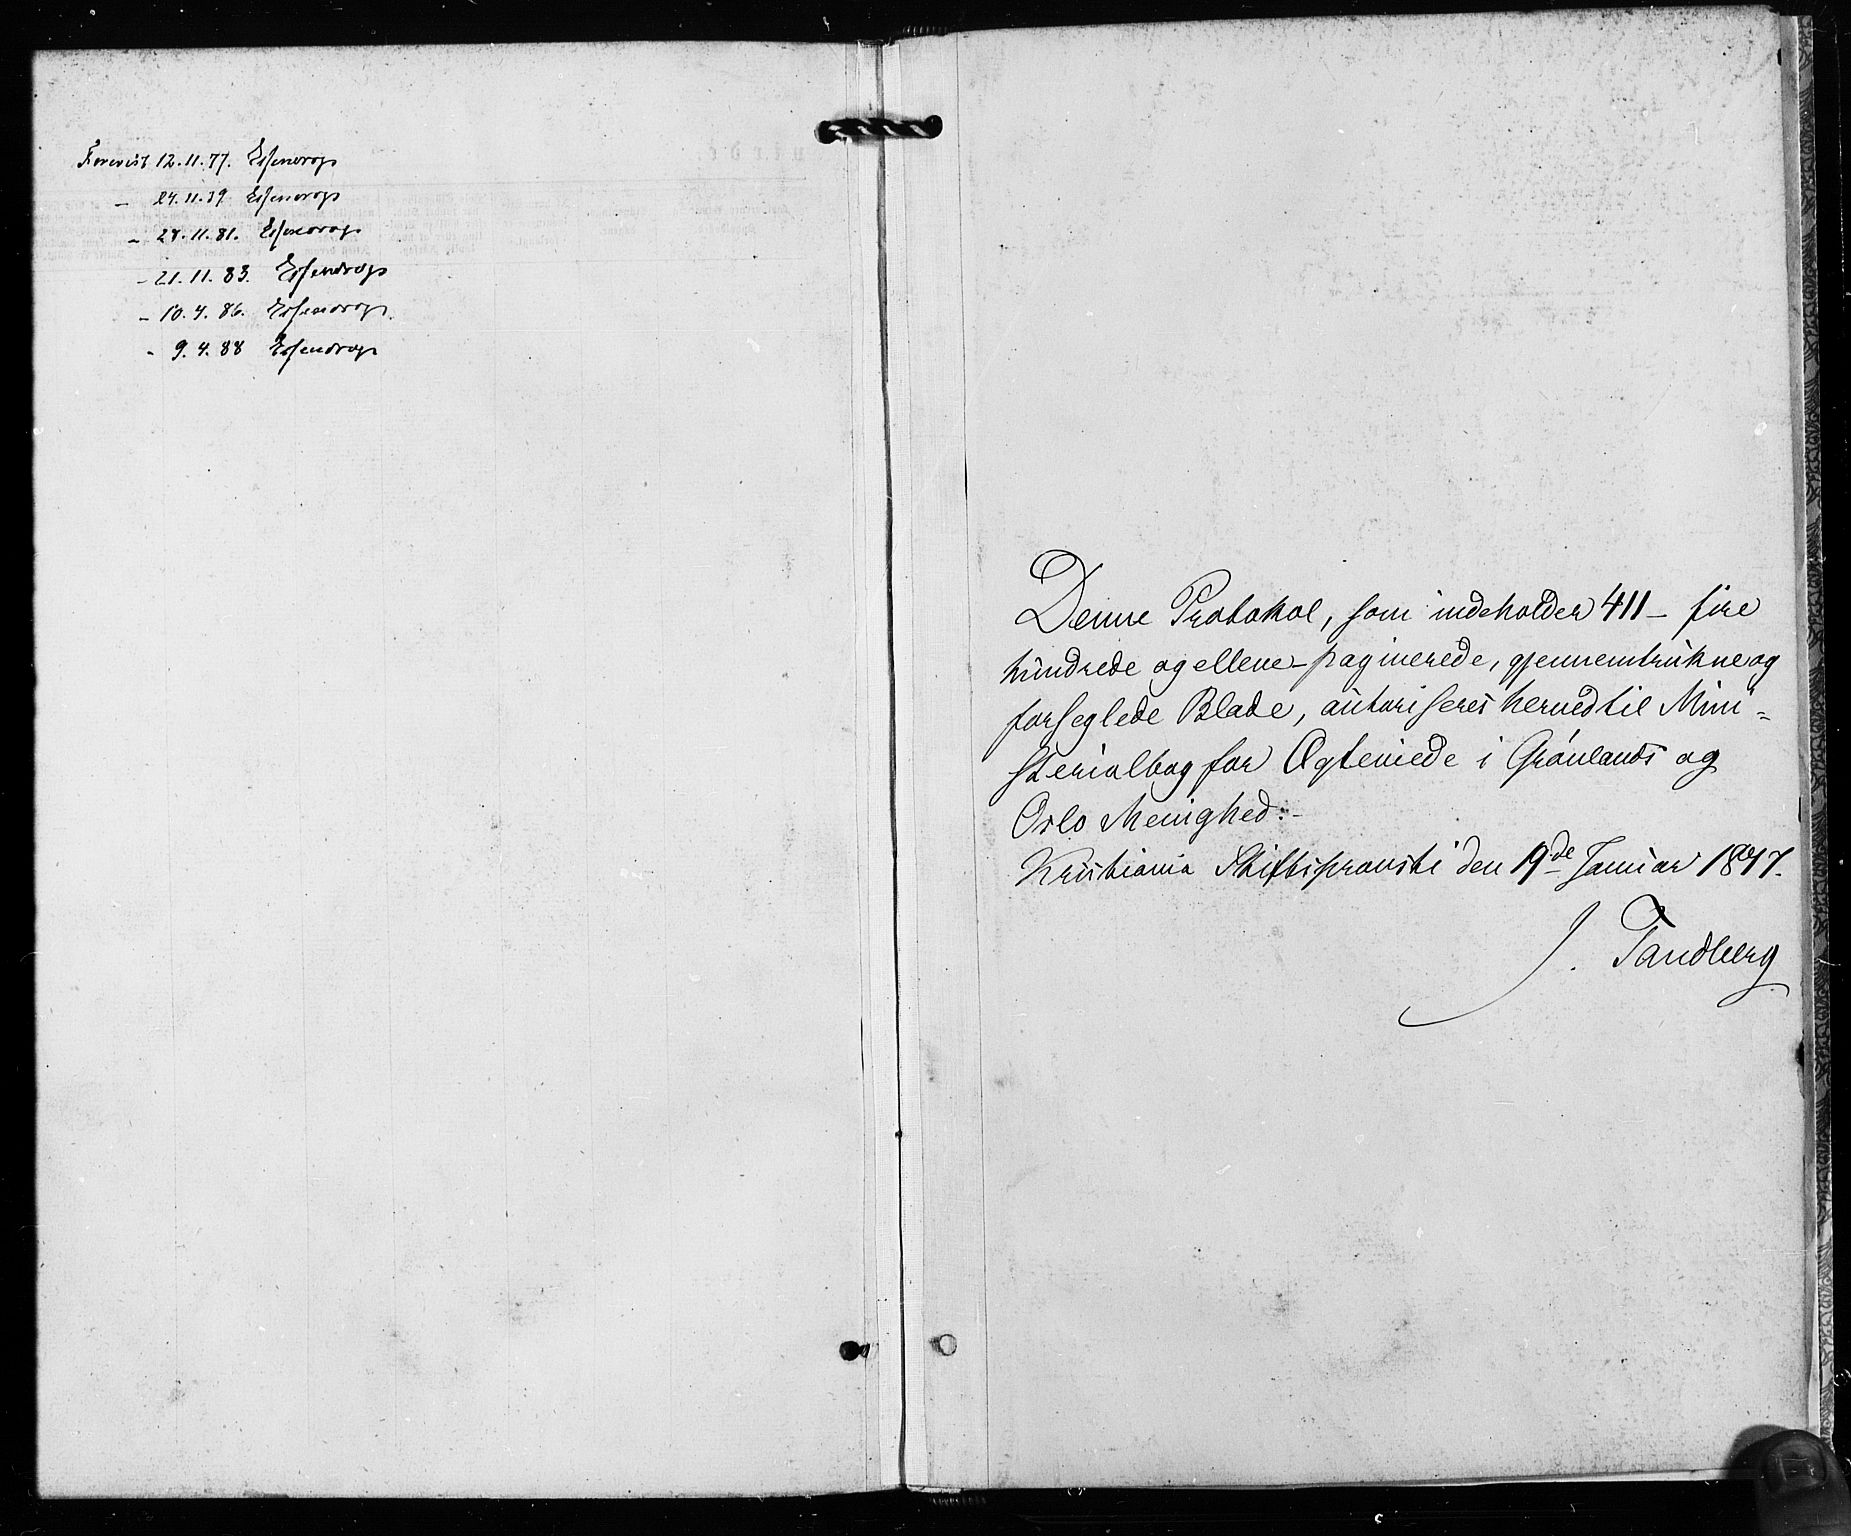 Forevist 12.11.77. Essendrop
- 24.11.79 Essendrop
- 28.11.81. Essendrop
- 21.11.83. Essendrop
- 10.4.86. Essendrop.
- 9.4.88 Essendrop
Denne Protokol, som indeholder 411 - fire
hundrede og elleve - paginerede, gjennemtrukne og
forseglede Blade, autoriseres herved til Mini=
sterialbog for Ægteviede i Grønlands og
Oslo Menighed.-
Kristiania Stiftsprovsti den 19de Januar 1877.
J. Tandberg